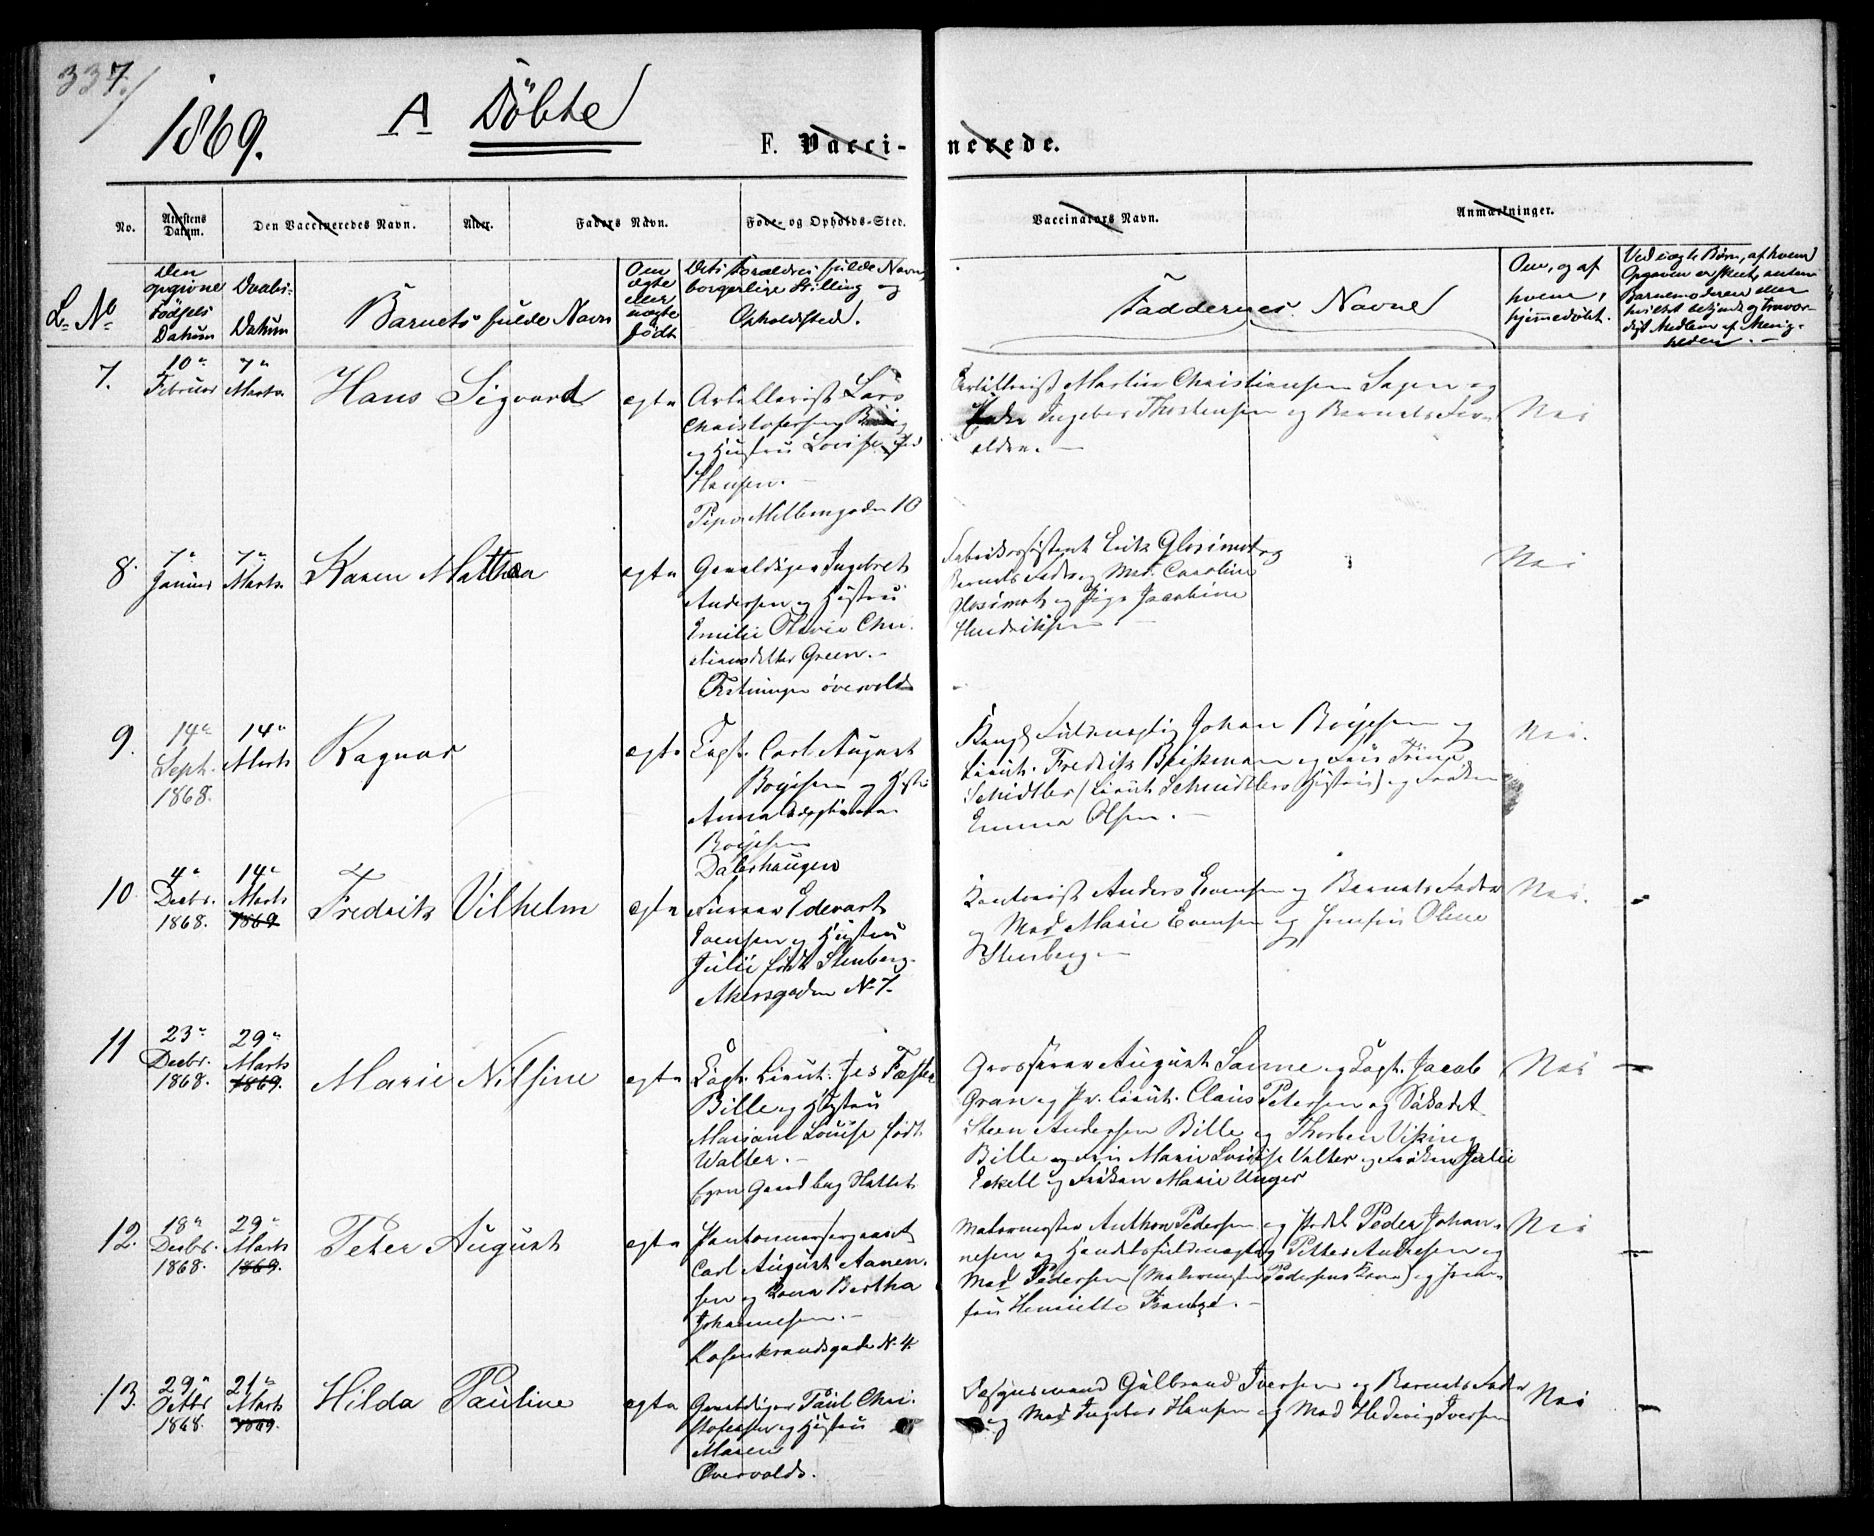 337.
1869.
A Döbte
F. Vacci-nerede.
No.
Attestens Datum.
Den Vaccineredes Navn.
Alder.
Faders Navn.
Føde- og Opholds-Sted.
Vaccinators Navn.
Anmærkninger.
L. No
Den opgivne Fødsels Datum
Daabs-Datum
Barnets fulde Navn
Om ægte eller uægte født
Dets Forældres fulde Navn, borgerlige Stilling og Opholdsted.
Faddernes Navne
Om, og af hvem, hjemmedøbt.
Ved uægte Børn, af hvem Opgaven er skeet, anten Barnemoderen eller hvilket bekjendt og troværdigt Medlem af Menigheden.
7.
10de Februar
7de Marts
Hans Sigvard
egte
Artillerist Lars
Christofersen
og Hustru Lovise fød
Hansen.
Pipervikbakken 10
Artillerist Martin Christiansen og
Ingebor Thostensen og Barnets For-
ældre.
Nei
8.
7de Januar
7de Marts
Karen Mathea
egte
Gevaldiger Ingebret
Andersen og Hustru
Emilie Olavia Chri-
stiansdatter Green.
Fæstningen øvervold
Fabriksassistent Erik Glosimot og
Barnets Fader og Mad. Caroline
Glosimot og Pige Jacobine
Hendriksen
Nei
9.
14de Sept. 1868.
14de Marts
Ragnar
egte
Capt. Carl August
Boyesen og Hustru
Anna
Boyesen
Dalshaugen
Fuldmægtig Johan Boyesen og
Lieut. Fredrik og Fru
Schidtler (Lieut. Schmidtlers Hustru) og Frøken
Emma Olsen.
Nei.
10
4de Decbr. 1868.
14de Marts 1869
Fredrik Vilhelm
egte
Furer Edevart
Evensen og Hustru
Julie født Stenberg.
Akersgaden No 7.
Kontorist Anders Evensen og Barnets Fader
og Mad Marie Evensen og Jomfru Oline
Stenberg
Nei.
11
23de Decbr. 1868.
29de Marts 1869.
Marie Nilsine
egte
Capt. Lieut. Jes Fæster
Bille og Hustru
Mariane Louise født
Walter.
Grosserer August Sanne og Capt. Jacob
Gran og Pr. Lieut. Claus Petersen og Søkadet
Steen Andersen Bille og Thorben Viking
Bille og Fru Marie Lovise Valter og Frøken Julie
Eckell og Frøken Marie Unger
Nei
12.
18de Decbr. 1868.
29de Marts 1869.
Peter August
egte
Pantonnersergeant
Carl August Aanen-
sen og Kone Bertha
Johannesen.
Rosenkrandsgade N. 4.
Malermester Anthon Pedersen og Peder Johan-
nesen og Handelsfuldmægtig Petter Andresen og
Mad Pedersen (Malermester Pedersens Kone) og Jom-
fru Henriette Frantze.
Nei
13.
29de Octbr 1868.
21de Marts 1869.
Hilda Pauline
egte
Gevaldiger Paul Chri-
stofersen og Hustru
Maren
Øvervolds.
Gulbrand Iversen og Barnets Fader
og Mad Ingebor Hansen og Mad Hedevig Iversen
Nei